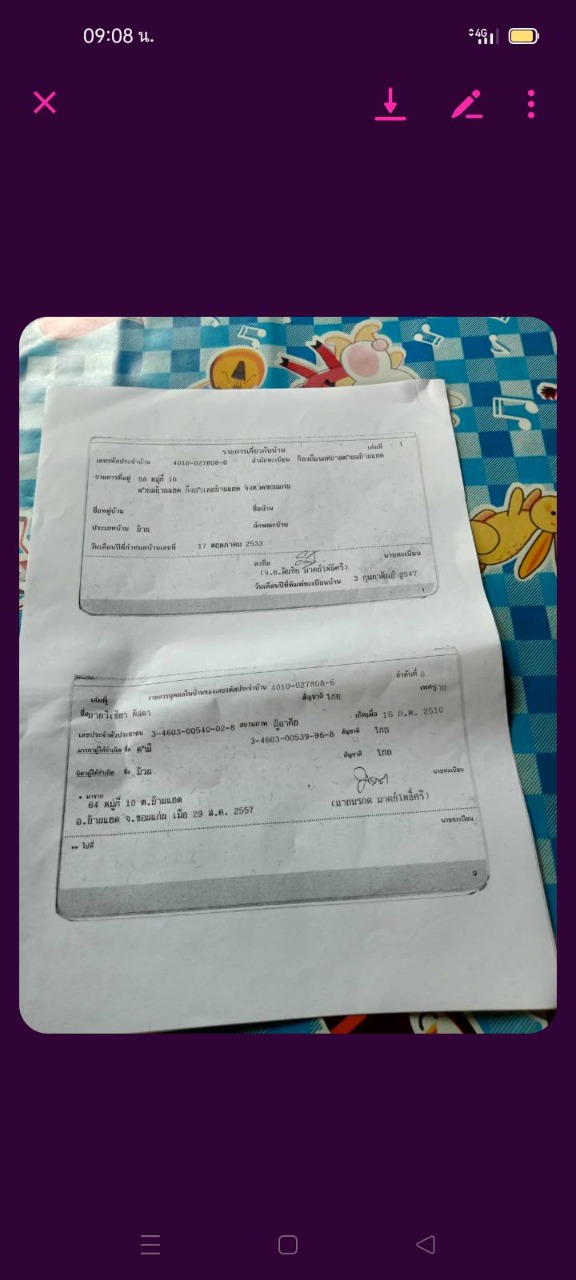 09:08 น.
4G
รายการเกี่ยวกับบ้าน เล่มที่ 1
เลขรหัสประจำบ้าน 4010-027808-6 สำนักทะเบียน
รายการที่อยู่ 58 หมู่ที่ 10
จังหวัดขอนแก่น
ชื่อหมู่บ้าน ชื่อบ้าน
ประเภทบ้าน บ้าน ลักษณะบ้าน
วันเดือนปีที่กำหนดบ้านเลขที่ 17 พฤษภาคม 2533
ลงชื่อ นายทะเบียน
วันเดือนปีที่พิมพ์ทะเบียนบ้าน 3 กุมภาพันธ์ 2547
1
เล่มที่ รายการบุคคลในบ้านของเลขรหัสประจำบ้าน 4010-027808-6 ลำดับที่
ชื่อ สัญชาติ ไทย เพศ
เลขประจำตัวประชาชน 3-4603-00540-02-8 สถานภาพ ผู้อาศัย เกิดเมื่อ 16 ก.พ. 2510
มารดาผู้ให้กำเนิด ชื่อ 3-4603-00539-96-8 สัญชาติ ไทย
บิดาผู้ให้กำเนิด ชื่อ สัญชาติ ไทย
* มาจาก นายทะเบียน
64 หมู่ที่ 10 ต.บ้านแฮด
อ.บ้านแฮด จ.ขอนแก่น เมื่อ 29 ส.ค. 2557
** ไปที่ นายทะเบียน
9